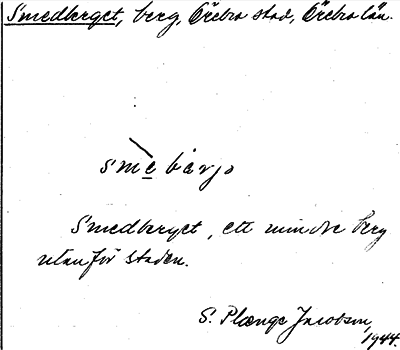 Smedberget, berg, Örebro stad, Örebro län.
sme bärjo
Smedberget, ett mindre berg
utanför staden.
S. Plænge Jacobson,
1944.